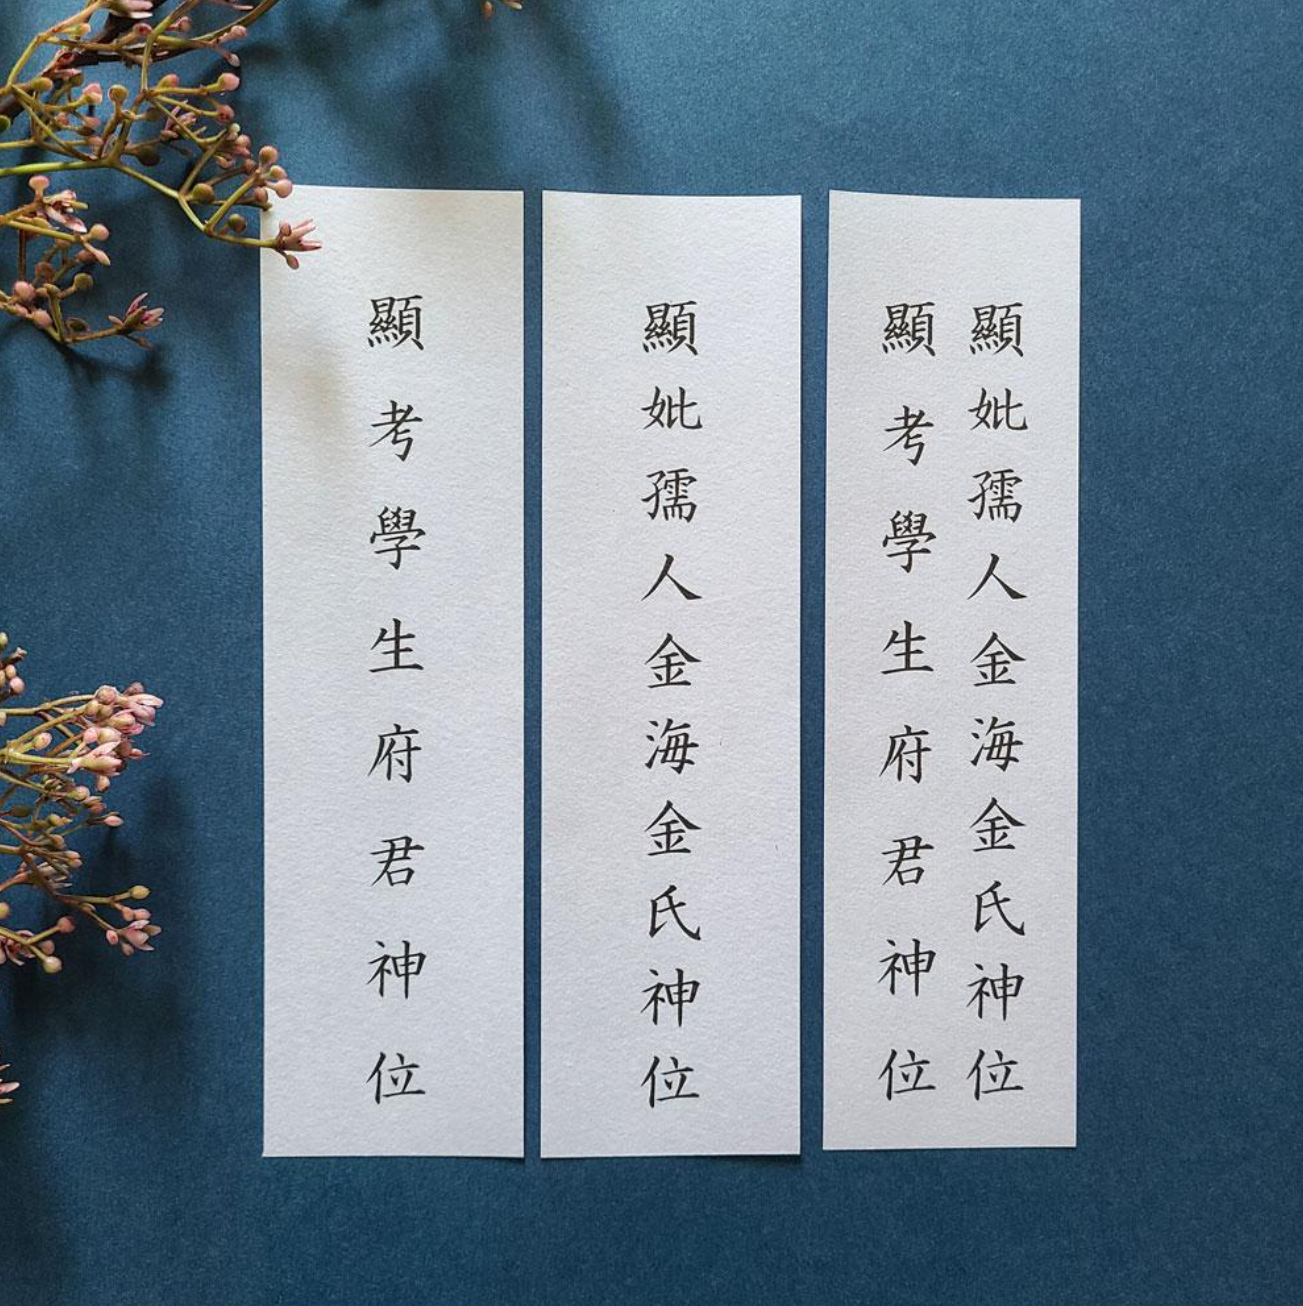 顯考學生府君神位
顯妣孺人金海金氏神位
顯考學生府君神位
顯妣孺人金海金氏神位